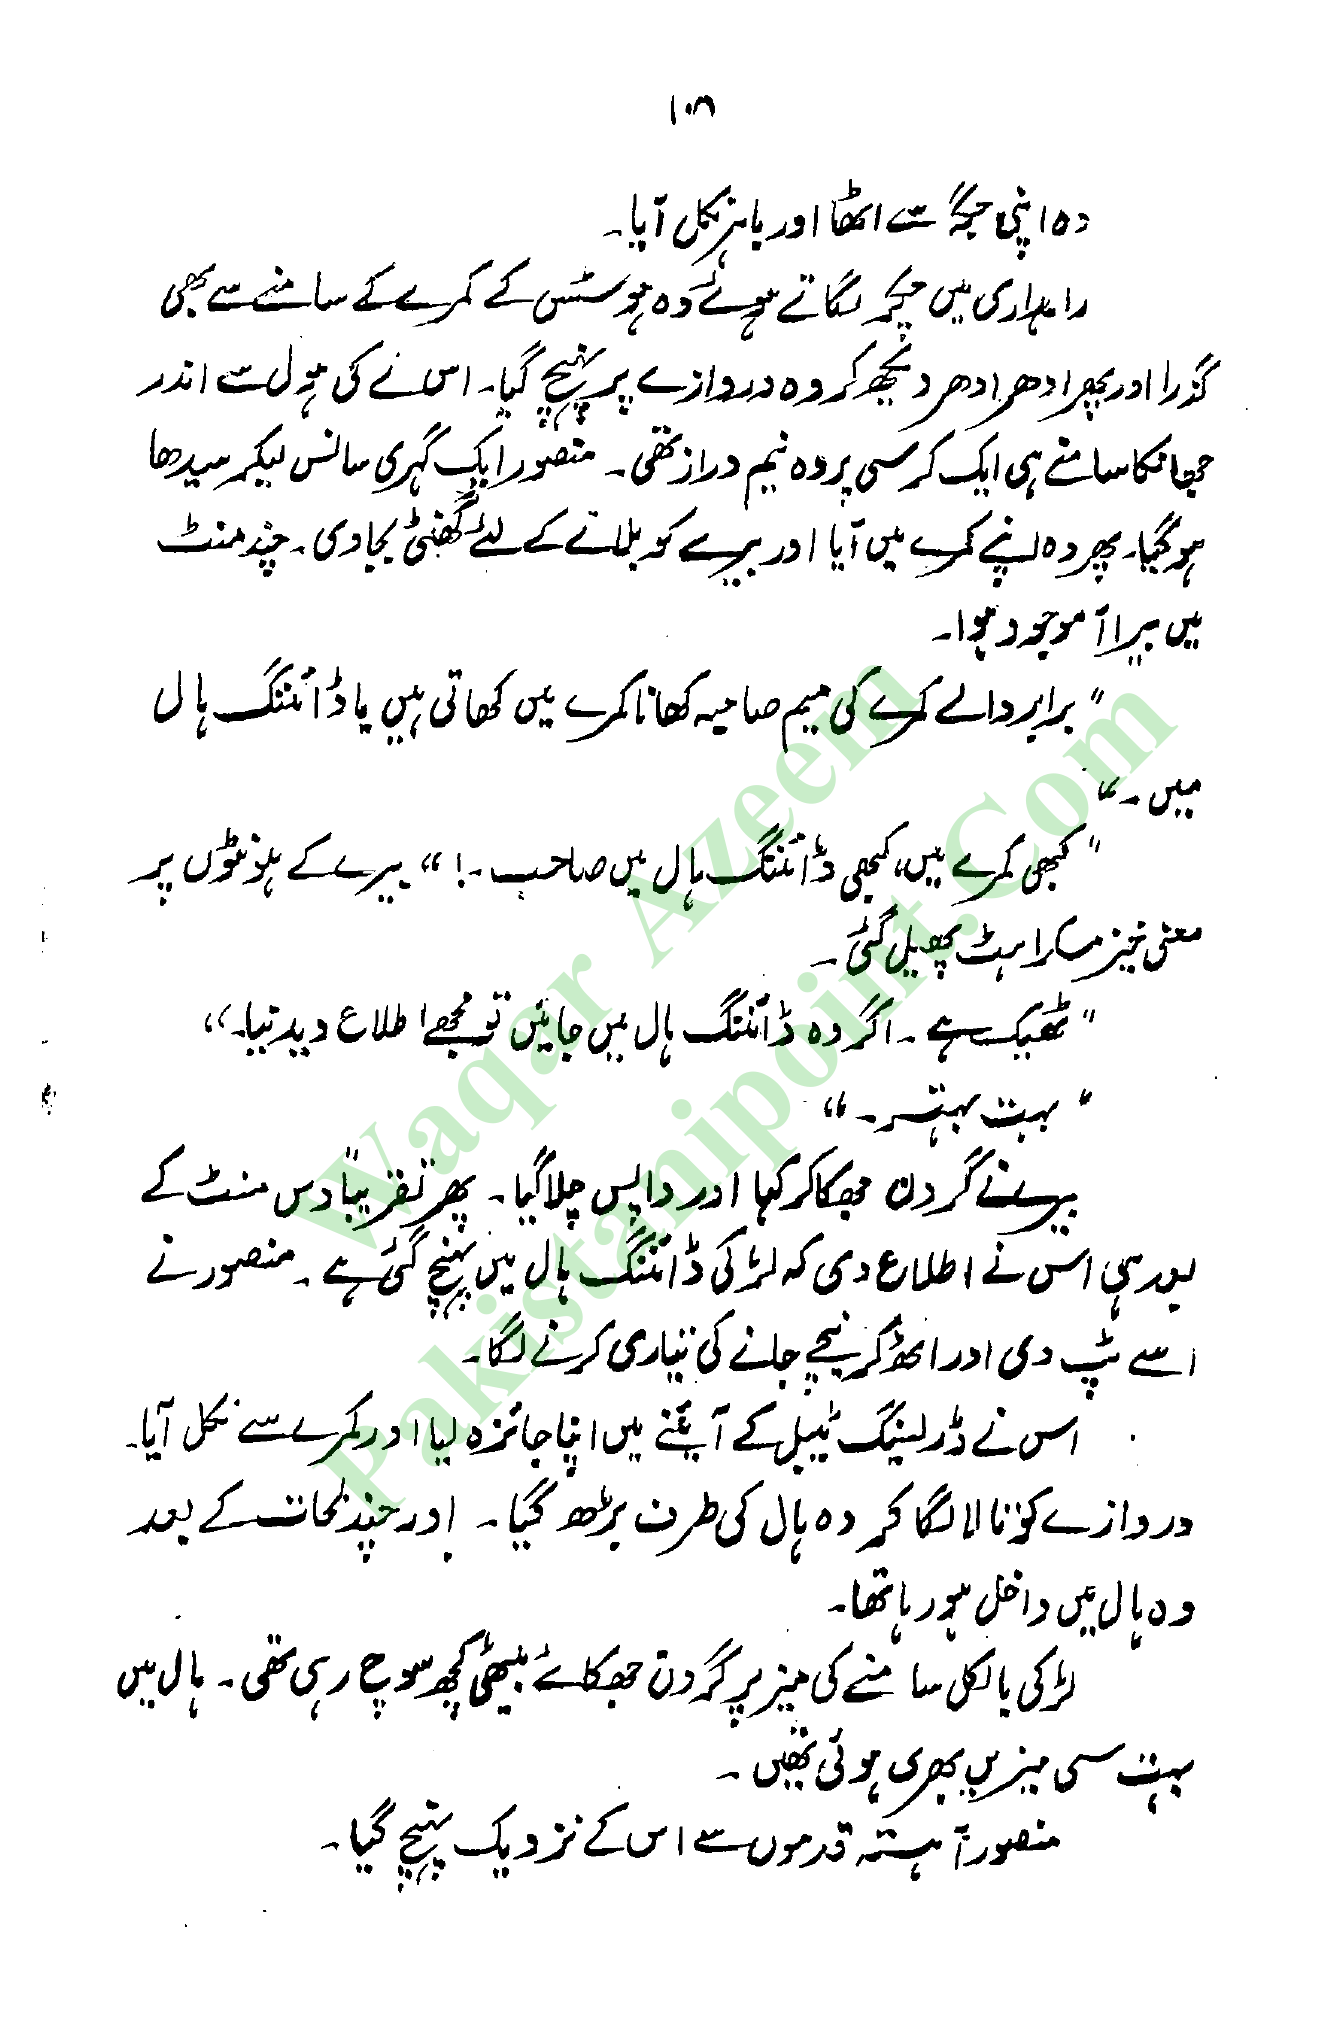 ۱۰۸
وہ اپنی جگہ سے اٹھا اور باہر نکل آیا۔
راہداری میں چکر لگاتے ہوئے وہ ہوسٹس کے کمرے کے سامنے سے بھی
گذرا اور پھر ادھر ادھر دیکھ کر وہ دروازے پر پہنچ گیا۔ اس نے کی ہول سے اندر
جھانکا سامنے ہی ایک کرسی پر وہ نیم دراز تھی۔ منصور ایک گہری سانس لیکر سیدھا
ہو گیا۔ پھر وہ اپنے کمرے میں آیا اور بیرے کو بلانے کے لئے گھنٹی بجا دی۔ چند منٹ
میں بیرا آ موجود ہوا۔
"برابر والے کمرے کی میم صاحبہ کھانا کمرے میں کھاتی ہیں یا ڈائننگ ہال
میں۔"
"کبھی کمرے میں، کبھی ڈائننگ ہال میں صاحب۔!" بیرے کے ہونٹوں پر
معنی خیز مسکراہٹ پھیل گئی۔
"ٹھیک ہے۔ اگر وہ ڈائننگ ہال میں جائیں تو مجھے اطلاع دیدینا۔"
"بہت بہتر۔"
بیرے نے گردن جھکا کر کہا اور واپس چلا گیا۔ پھر تقریباً دس منٹ کے
بعد ہی اس نے اطلاع دی کہ لڑکی ڈائننگ ہال میں پہنچ گئی ہے۔ منصور نے
اسے ٹپ دی اور اٹھ کر نیچے جانے کی تیاری کرنے لگا۔
اس نے ڈرلینگ ٹیبل کے آئینے میں اپنا جائزہ لیا اور کمرے سے نکل آیا۔
دروازے کو تالا لگا کر وہ ہال کی طرف بڑھ گیا۔ اور چند لمحات کے بعد
وہ ہال میں داخل ہو رہا تھا۔
لڑکی بالکل سامنے کی میز پر گردن جھکائے بیٹھی کچھ سوچ رہی تھی۔ ہال میں
بہت سی میزیں بھری ہوئی تھیں۔
منصور آہستہ قدموں سے اس کے نزدیک پہنچ گیا۔
Waqar Azeem
Pakistanipoint.Com